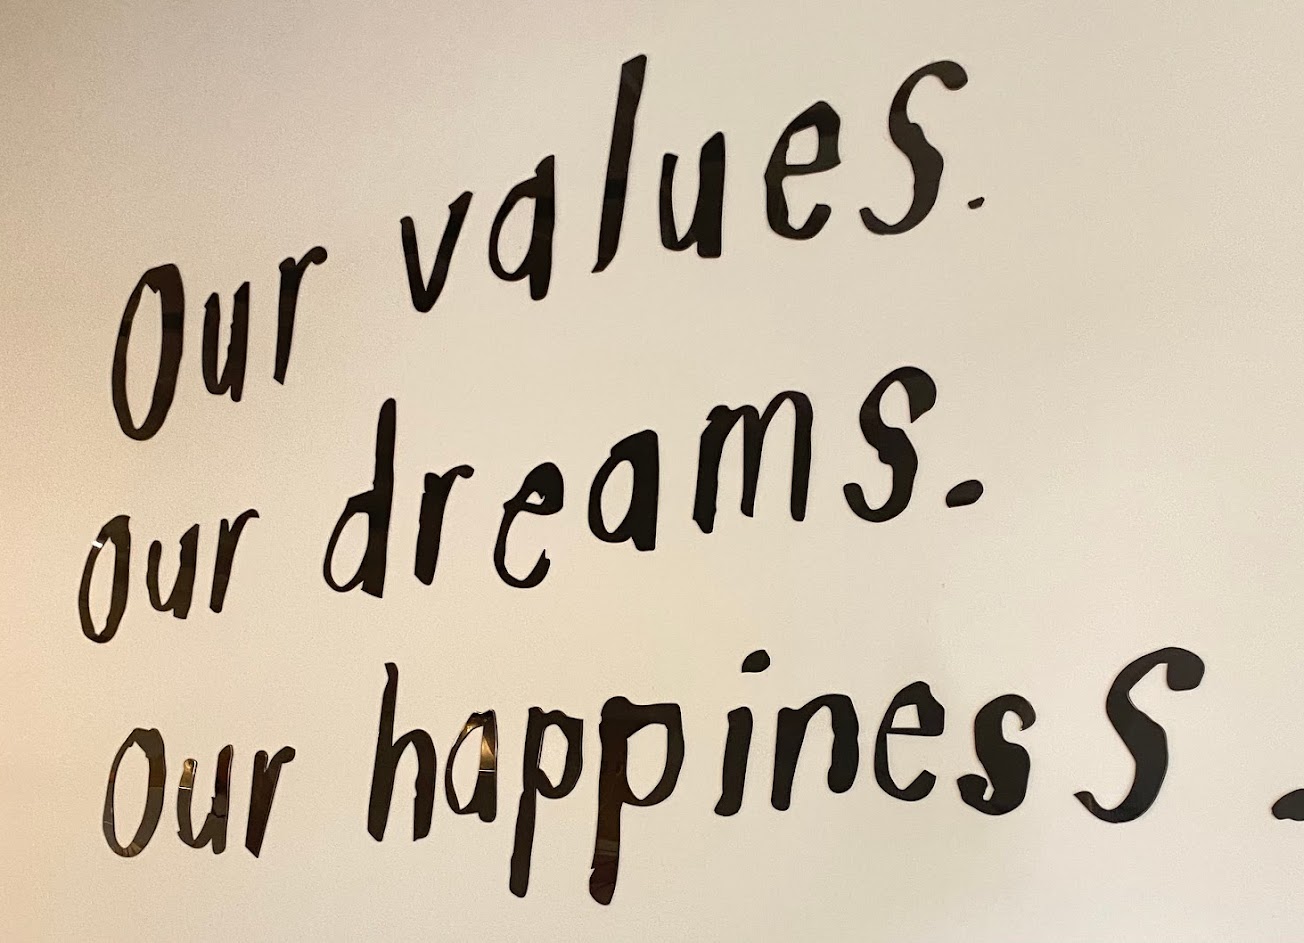 Our values.
Our dreams.
Our happiness.